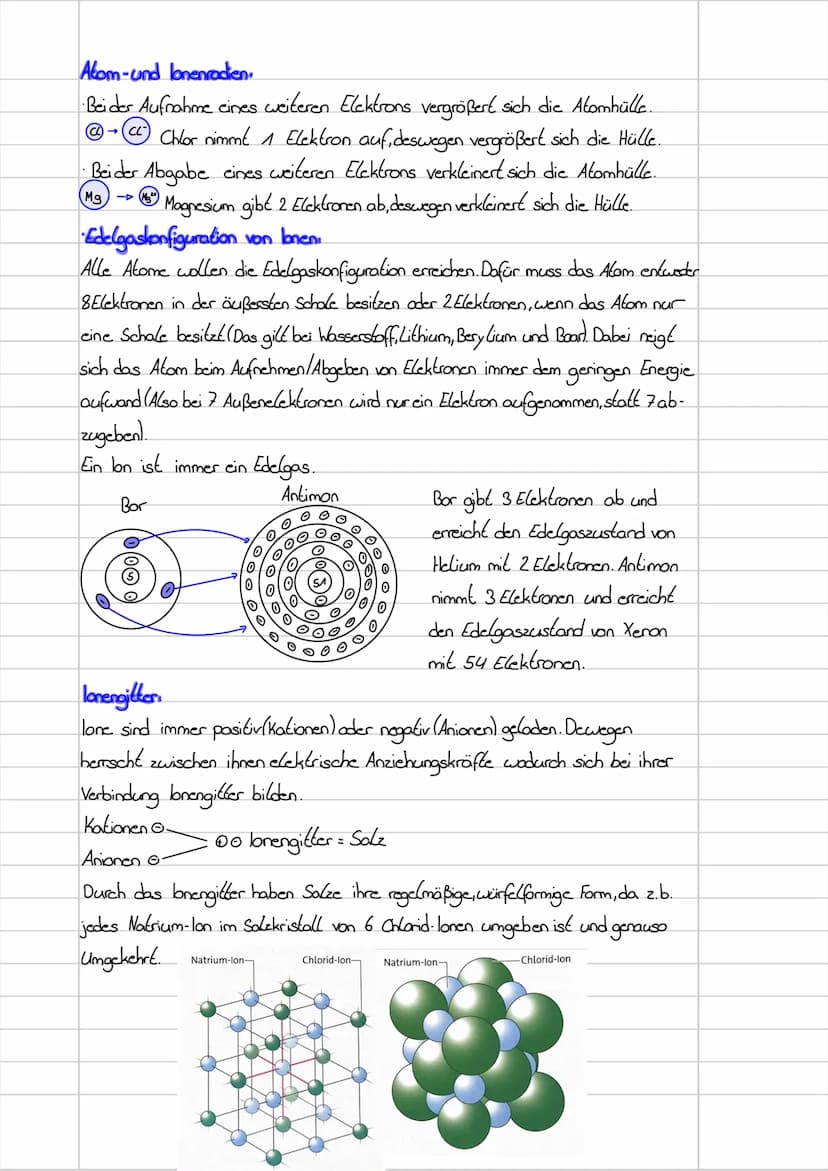 Atom-und Ionenradien:
·Bei der Aufnahme eines weiteren Elektrons vergrößert sich die Atomhülle.
Cl → Cl⁻ Chlor nimmt 1 Elektron auf, deswegen vergrößert sich die Hülle.
·Bei der Abgabe eines weiteren Elektrons verkleinert sich die Atomhülle.
Mg → Mg²⁺ Magnesium gibt 2 Elektronen ab, deswegen verkleinert sich die Hülle.
·Edelgaskonfiguration von Ionen:
Alle Atome wollen die Edelgaskonfiguration erreichen. Dafür muss das Atom entweder
8 Elektronen in der äußersten Schale besitzen oder 2 Elektronen, wenn das Atom nur
eine Schale besitzt (Das gilt bei Wasserstoff, Lithium, Berylium und Boar). Dabei neigt
sich das Atom beim Aufnehmen/Abgeben von Elektronen immer dem geringen Energie
aufwand (Also bei 7 Außenelektronen wird nur ein Elektron aufgenommen, statt 7 ab-
zugeben).
Ein Ion ist immer ein Edelgas.
Bor
Antimon
5
51
Bor gibt 3 Elektronen ab und
erreicht den Edelgaszustand von
Helium mit 2 Elektronen. Antimon
nimmt 3 Elektronen und erreicht
den Edelgaszustand von Xenon
mit 54 Elektronen.
Ionengitter:
Ione sind immer positiv (Kationen) oder negativ (Anionen) geladen. Dewegen
herrscht zwischen ihnen elektrische Anziehungskräfte wodurch sich bei ihrer
Verbindung Ionengitter bilden.
Kationen ⊖
⊕⊖ Ionengitter = Salz
Anionen ⊖
Durch das Ionengitter haben Salze ihre regelmäßige, würfelförmige Form, da z.b.
jedes Natrium-Ion im Salzkristall von 6 Chlorid-Ionen umgeben ist und genauso
Umgekehrt.
Natrium-Ion
Chlorid-Ion
Natrium-Ion
Chlorid-Ion